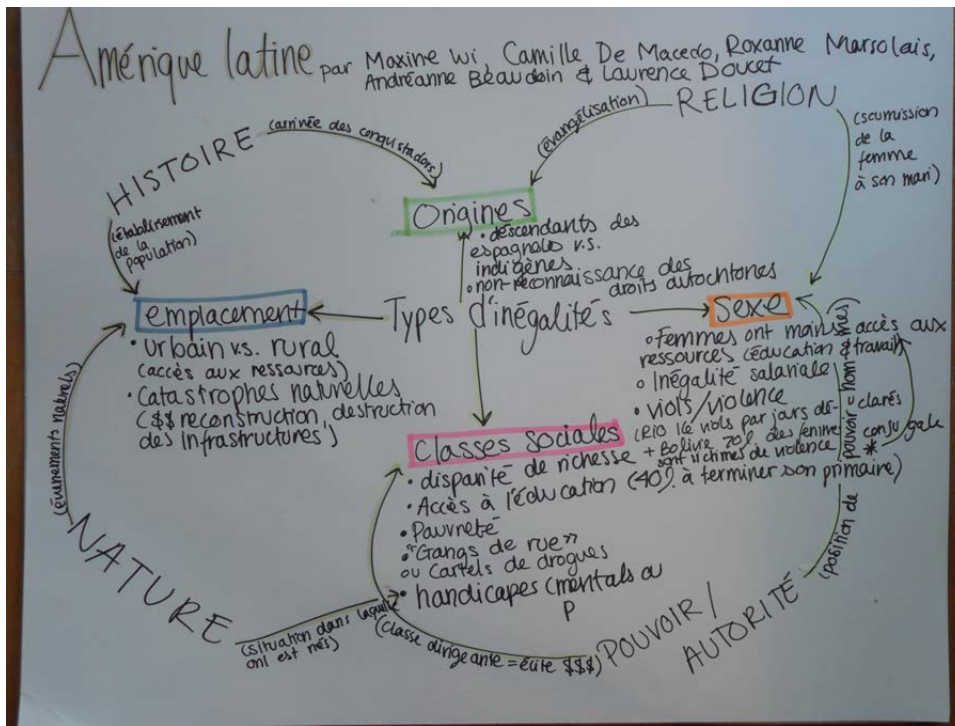 Amérique latine par Maxine Wi, Camille De Macedo, Roxanne Marsolais,
Andréanne Beaudoin & Laurence Doucet
RELIGION
(évangélisation)
(soumission
de la
femme
à son mari)
HISTOIRE
(arrivée des conquistadors)
(établissement
de la
population)
Origines
• descendants des
espagnols v.s.
indigènes
• non-reconnaissance des
droits autochtones
Types d'inégalités
emplacement
• Urbain v.s. rural
(accès aux ressources)
• Catastrophes naturelles
($$ reconstruction, destruction
des infrastructures)
Sexe
• Femmes ont moins accès aux
ressources (éducation & travail)
• Inégalité salariale
• viols/violence
(RIO 16 viols par jours dé-
clarés
+ Bolivie 70% des femmes
sont victimes de violence
* conjugale
Classes sociales
• disparité de richesse
• Accès à l'éducation (40% à terminer son primaire)
• Pauvreté
• "Gangs de rue"
ou Cartels de drogues
• handicapes (mentals ou
p
(événements naturels)
NATURE
(situation dans laquelle
on est nés)
(classe dirigeante = élite $$$)
POUVOIR /
AUTORITÉ
(position de pouvoir = hommes)